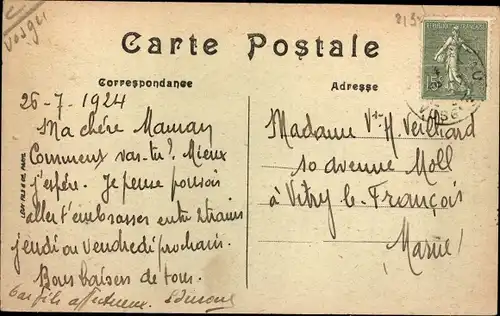 Vosges
Carte Postale
Correspondance
Adresse
REPUBLIQUE FRANÇAISE
15
26-7-1924
Ma chère Maman
Comment vas-tu? Mieux
j'espère. Je pense pouvoir
aller t'embrasser entre 2 trains
jeudi ou Vendredi prochain.
Bons baisers de tous.
Ton fils affectueux.
Madame Vve H. Veilliard
10 avenue Moll
à Vitry le François
Marne
LEVY FILS & Cie, PARIS